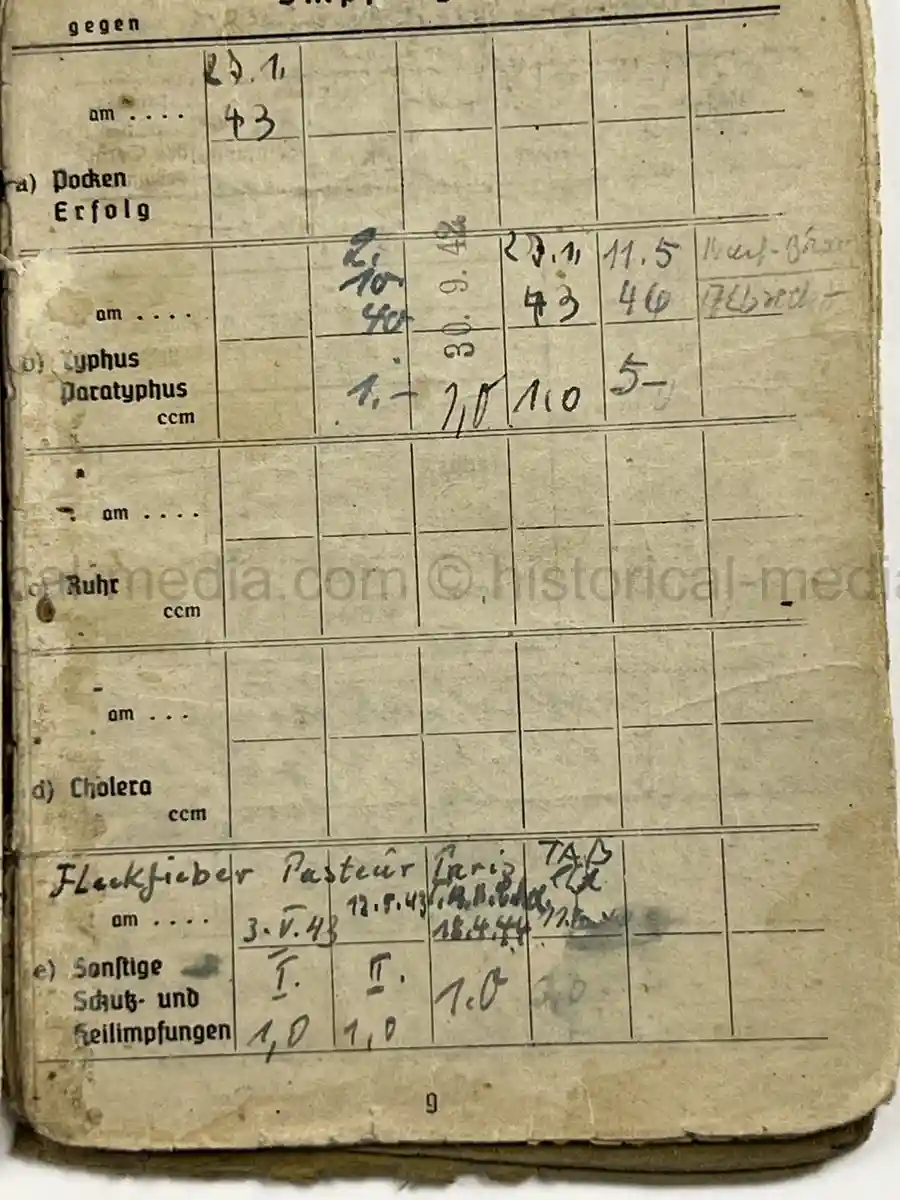 gegen
am ....
43
a) Pocken
Erfolg
2. 30. 9. 42 11.5
10.
am .... 40 43 46
b) Typhus
Paratyphus 1.- 1,0 1,0 5-
ccm
am ....
Ruhr
ccm
am ...
d) Cholera
ccm
Fleckfieber Pasteur Paris TAB
am .... 3.V.43 12.V.43 18.4.44
e) Sonstige I. II. 1.0
Schutz- und
Heilimpfungen 1,0 1,0
9
historical-media.com © historical-media